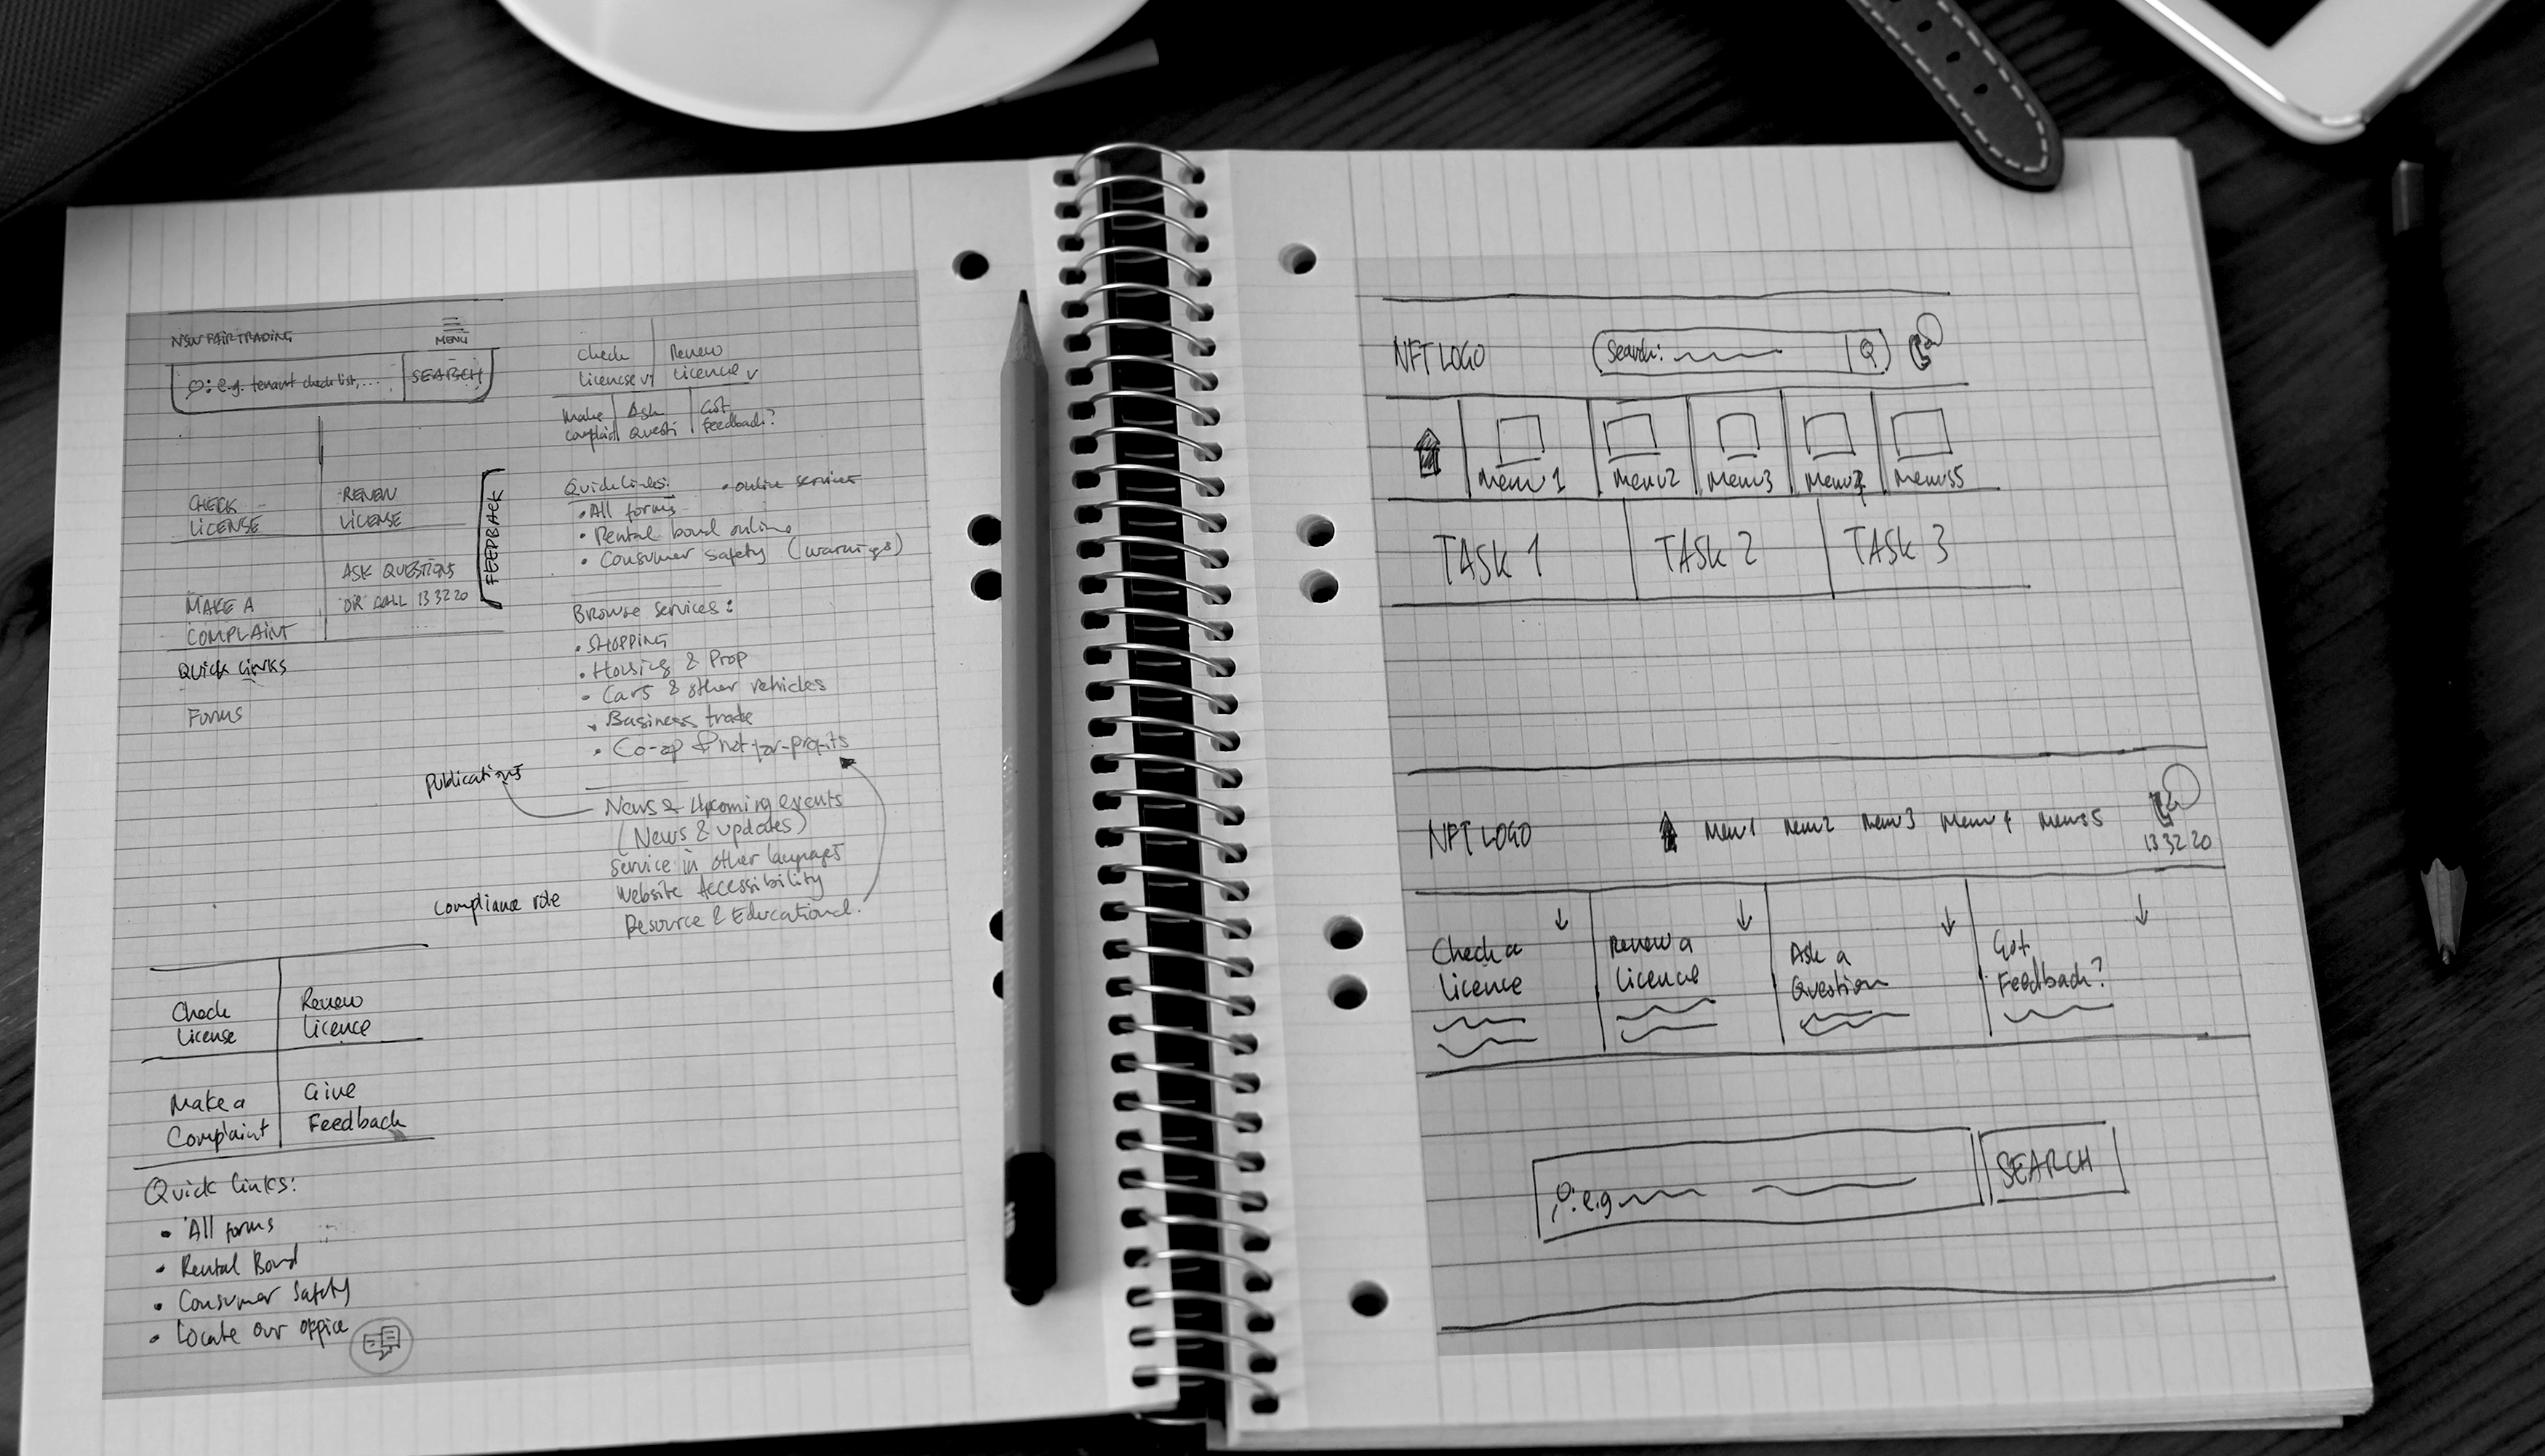 NSW FAIR TRADING
MENU
e.g. tenant check list, ...
SEARCH
CHECK
LICENSE
RENEW
LICENSE
MAKE A
COMPLAINT
ASK QUESTIONS
OR CALL 13 32 20
FEEDBACK
QUICK LINKS
Forms
Check
License
Renew
Licence
Make
Ask
Questi
Got
Feedback?
Quick Links:
• online services
• All forms
• Rental bond online
• Consumer safety (warnings)
Browse services:
• SHOPPING
• Housing & Prop
• Cars & other vehicles
• Business trade
• Co-op & not-for-profits
Publications
News & Upcoming events
(News & updates)
Service in other languages
Website Accessibility
Compliance role
Resource & Educational.
Check
License
Renew
Licence
Make a
Complaint
Give
Feedback
Quick Links:
• All forms
• Rental Bond
• Consumer Safety
• Locate our office
NFT LOGO
Search:
Menu 1
Menu 2
Menu 3
Menu 4
Menu 5
TASK 1
TASK 2
TASK 3
NFT LOGO
Menu 1 Menu 2 Menu 3 Menu 4 Menu 5
13 32 20
Check a
Licence
Renew a
Licence
Ask a
Question
Got
Feedback?
: e.g
SEARCH
HB